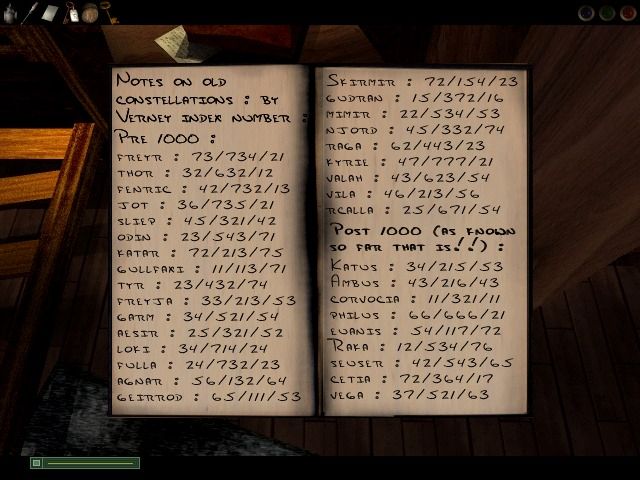 Notes on old
constellations : by
Verney index number :
Pre 1000 :
Freyr : 73/734/21
Thor : 32/632/12
Fenric : 42/732/13
Jot : 36/735/21
Sliep : 45/321/42
Odin : 23/543/71
Katar : 72/213/75
Gullfaxi : 11/113/71
Tyr : 23/432/74
Freyja : 33/213/53
Garm : 34/521/54
Aesir : 25/321/52
Loki : 34/714/24
Fulla : 24/732/23
Agnar : 56/132/64
Geirrod : 65/111/53
Skirmir : 72/154/23
Gudran : 15/372/16
Mimir : 22/534/53
Njord : 45/332/74
Raga : 62/443/23
Kyrie : 47/777/21
Valah : 43/623/54
Vila : 46/213/56
Rcalla : 25/671/54
Post 1000 (as known
so far that is!!) :
Katus : 34/215/53
Ambus : 43/216/43
Corvocia : 11/321/11
Philus : 66/666/21
Evanis : 54/117/72
Raka : 12/534/76
Seuser : 42/543/65
Cetia : 72/364/17
Vega : 37/521/63